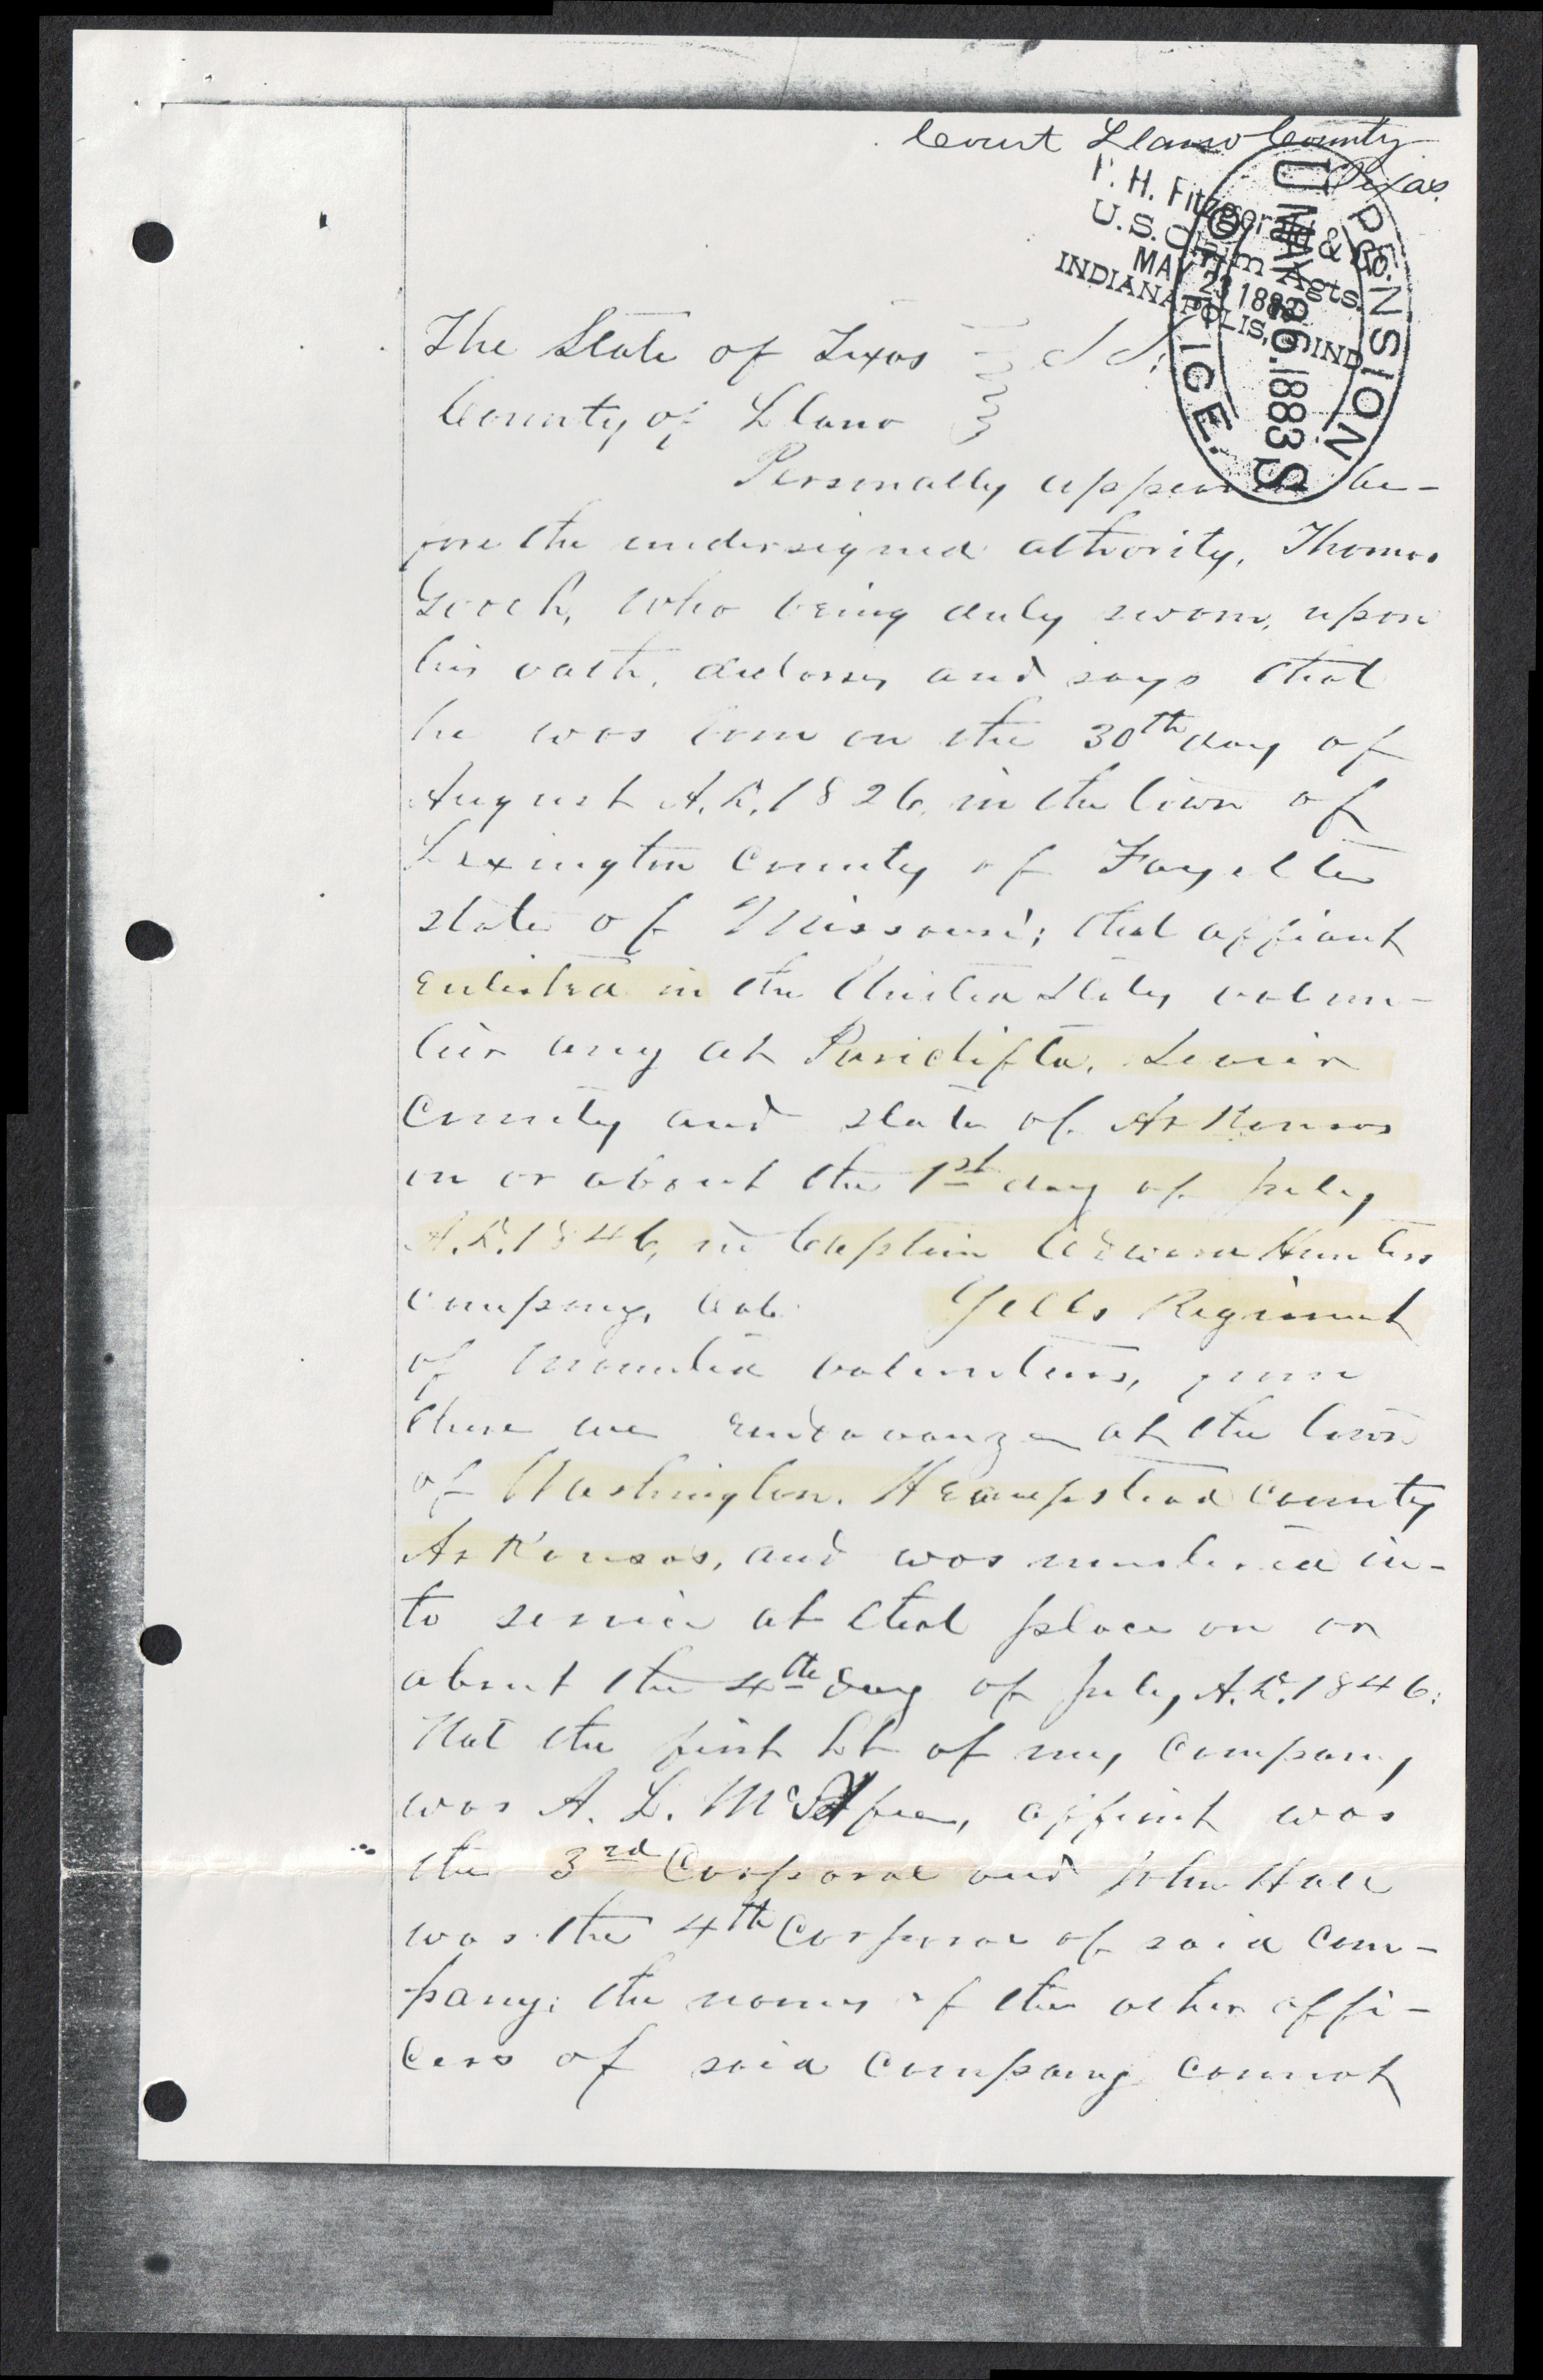 Court Llano County
Texas.
F. H. Fitzgerald & Co.
U.S. Claim Agts.
MAY 23 1883
INDIANAPOLIS, IND
U.S. PENSION OFFICE.
MAY 26. 1883
The State of Texas } SS.
County of Llano }
Personally appeared be-
fore the undersigned athority, Thomas
Gooch, who being duly sworn, upon
his oath, and says that
he was born on the 30th day of
August A.D. 1826, in the town of
Lexington County of Fayette
state of Missouri; that affiant
enlisted in the United States volun-
teer army at Paraclifta, Sevier
County and state of Arkansas
on or about the 1st day of July
A.D. 1846, in Captain Edward Hunters
company, Col. Yells Regiment
of mounted volunteers, from
there we at the town
of Washington. Heampstead county
Arkansas, and was mustered in-
to service at that place on or
about the 4th day of July, A.D. 1846:
that the first Lt of my company
was A. L. McAfee, affiant was
the 3rd Corporal and John Hall
was the 4th Corporal of said com-
pany; the names of the other offi-
cers of said company cannot